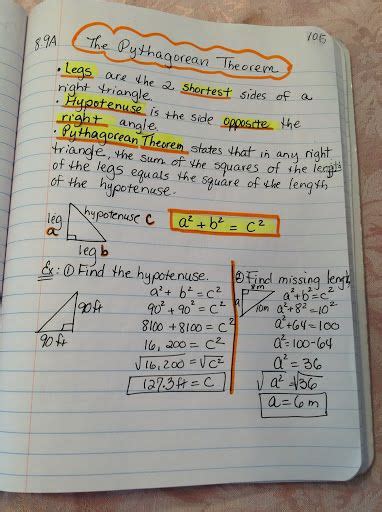 105
8.9A The Pythagorean Theorem
• Legs are the 2 shortest sides of a
right triangle.
• Hypotenuse is the side opposite the
right angle.
• Pythagorean Theorem states that in any right
triangle, the sum of the squares of the lengths
of the legs equals the square of the length
of the hypotenuse.
leg a
hypotenuse c
leg b
a² + b² = c²
Ex: ① Find the hypotenuse.
90ft
90ft
a² + b² = c²
90² + 90² = c²
8100 + 8100 = c²
16,200 = c²
√16,200 = √c²
127.3ft = c
② Find missing length
8m
a
10m
a² + b² = c²
a² + 8² = 10²
a² + 64 = 100
a² = 100-64
a² = 36
√a² = √36
a = 6m